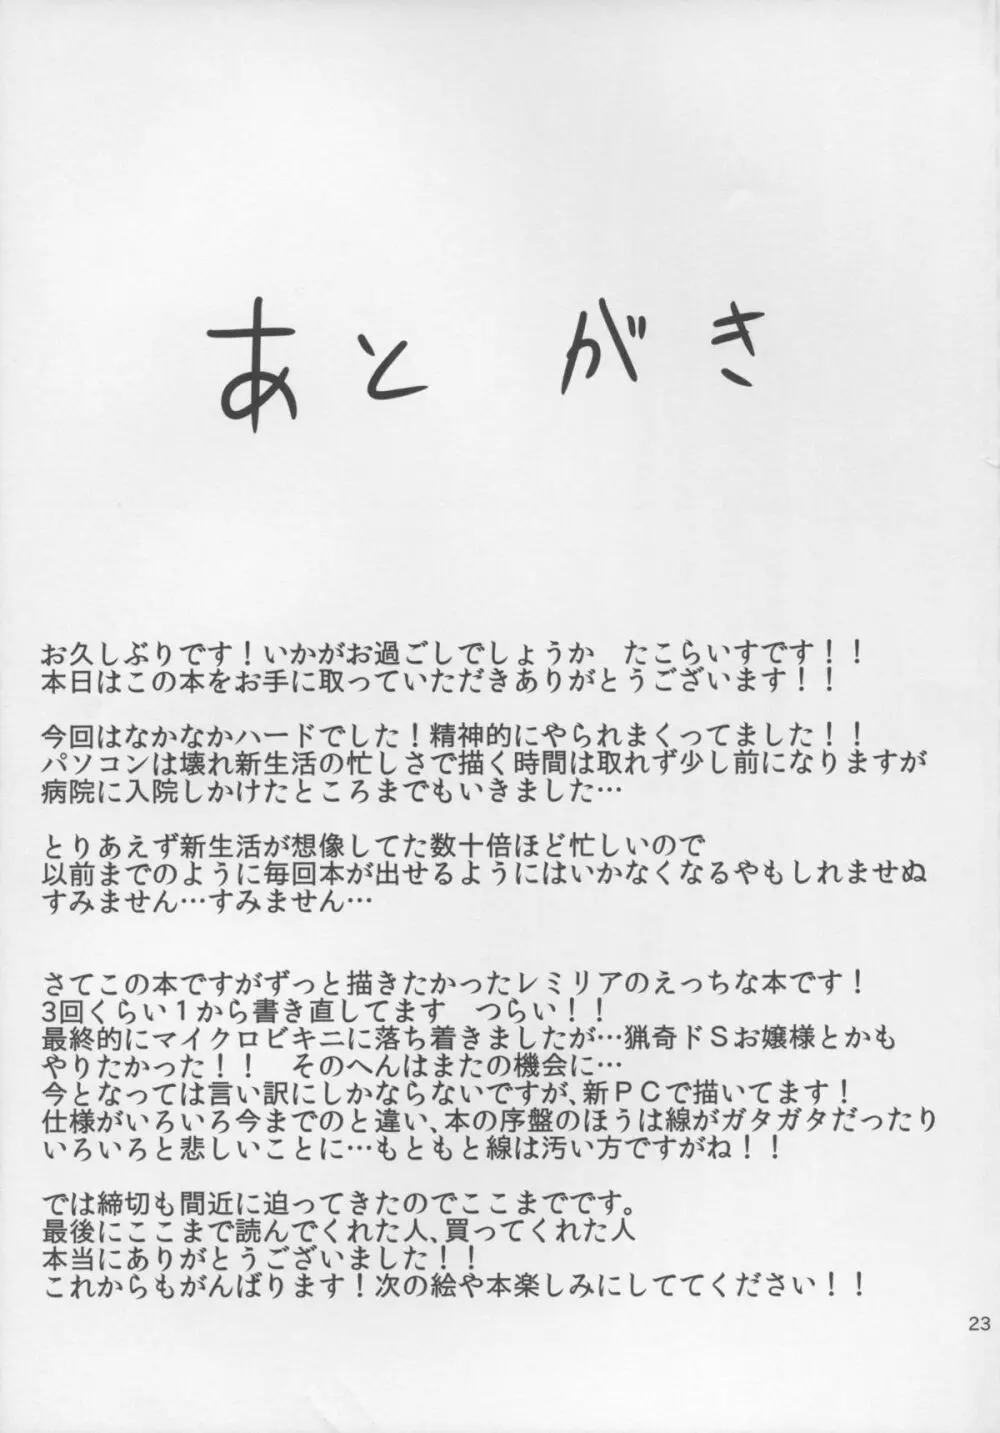 あとがき
お久しぶりです！いかがお過ごしでしょうか　たこらいすです！！
本日はこの本をお手に取っていただきありがとうございます！！
今回はなかなかハードでした！精神的にやられまくってました！！
パソコンは壊れ新生活の忙しさで描く時間は取れず少し前になりますが
病院に入院しかけたところまでもいきました…
とりあえず新生活が想像してた数十倍ほど忙しいので
以前までのように毎回本が出せるようにはいかなくなるやもしれませぬ
すみません…すみません…
さてこの本ですがずっと描きたかったレミリアのえっちな本です！
3回くらい１から書き直してます　つらい！！
最終的にマイクロビキニに落ち着きましたが…猟奇ドＳお嬢様とかも
やりたかった！！　そのへんはまたの機会に…
今となっては言い訳にしかならないですが、新ＰＣで描いてます！
仕様がいろいろ今までのと違い、本の序盤のほうは線がガタガタだったり
いろいろと悲しいことに…もともと線は汚い方ですがね！！
では締切も間近に迫ってきたのでここまでです。
最後にここまで読んでくれた人、買ってくれた人
本当にありがとうございました！！
これからもがんばります！次の絵や本楽しみにしててください！！
23